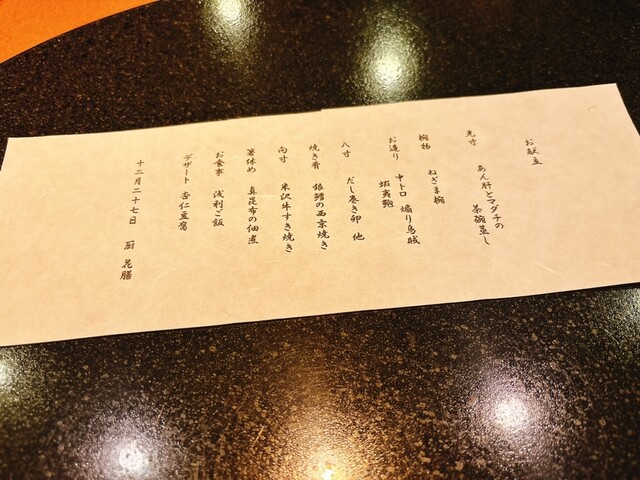 お献立
先寸 あん肝とマダチの
茶碗蒸し
椀物 ねぎま椀
お造り 中トロ 煽り烏賊
蝦夷鮑
八寸 だし巻き卵 他
焼き肴 銀鱈の西京焼き
向寸 米沢牛すき焼き
箸休め 真昆布の佃煮
お食事 浅利ご飯
デザート 杏仁豆腐
十二月二十七日 厨 花膳